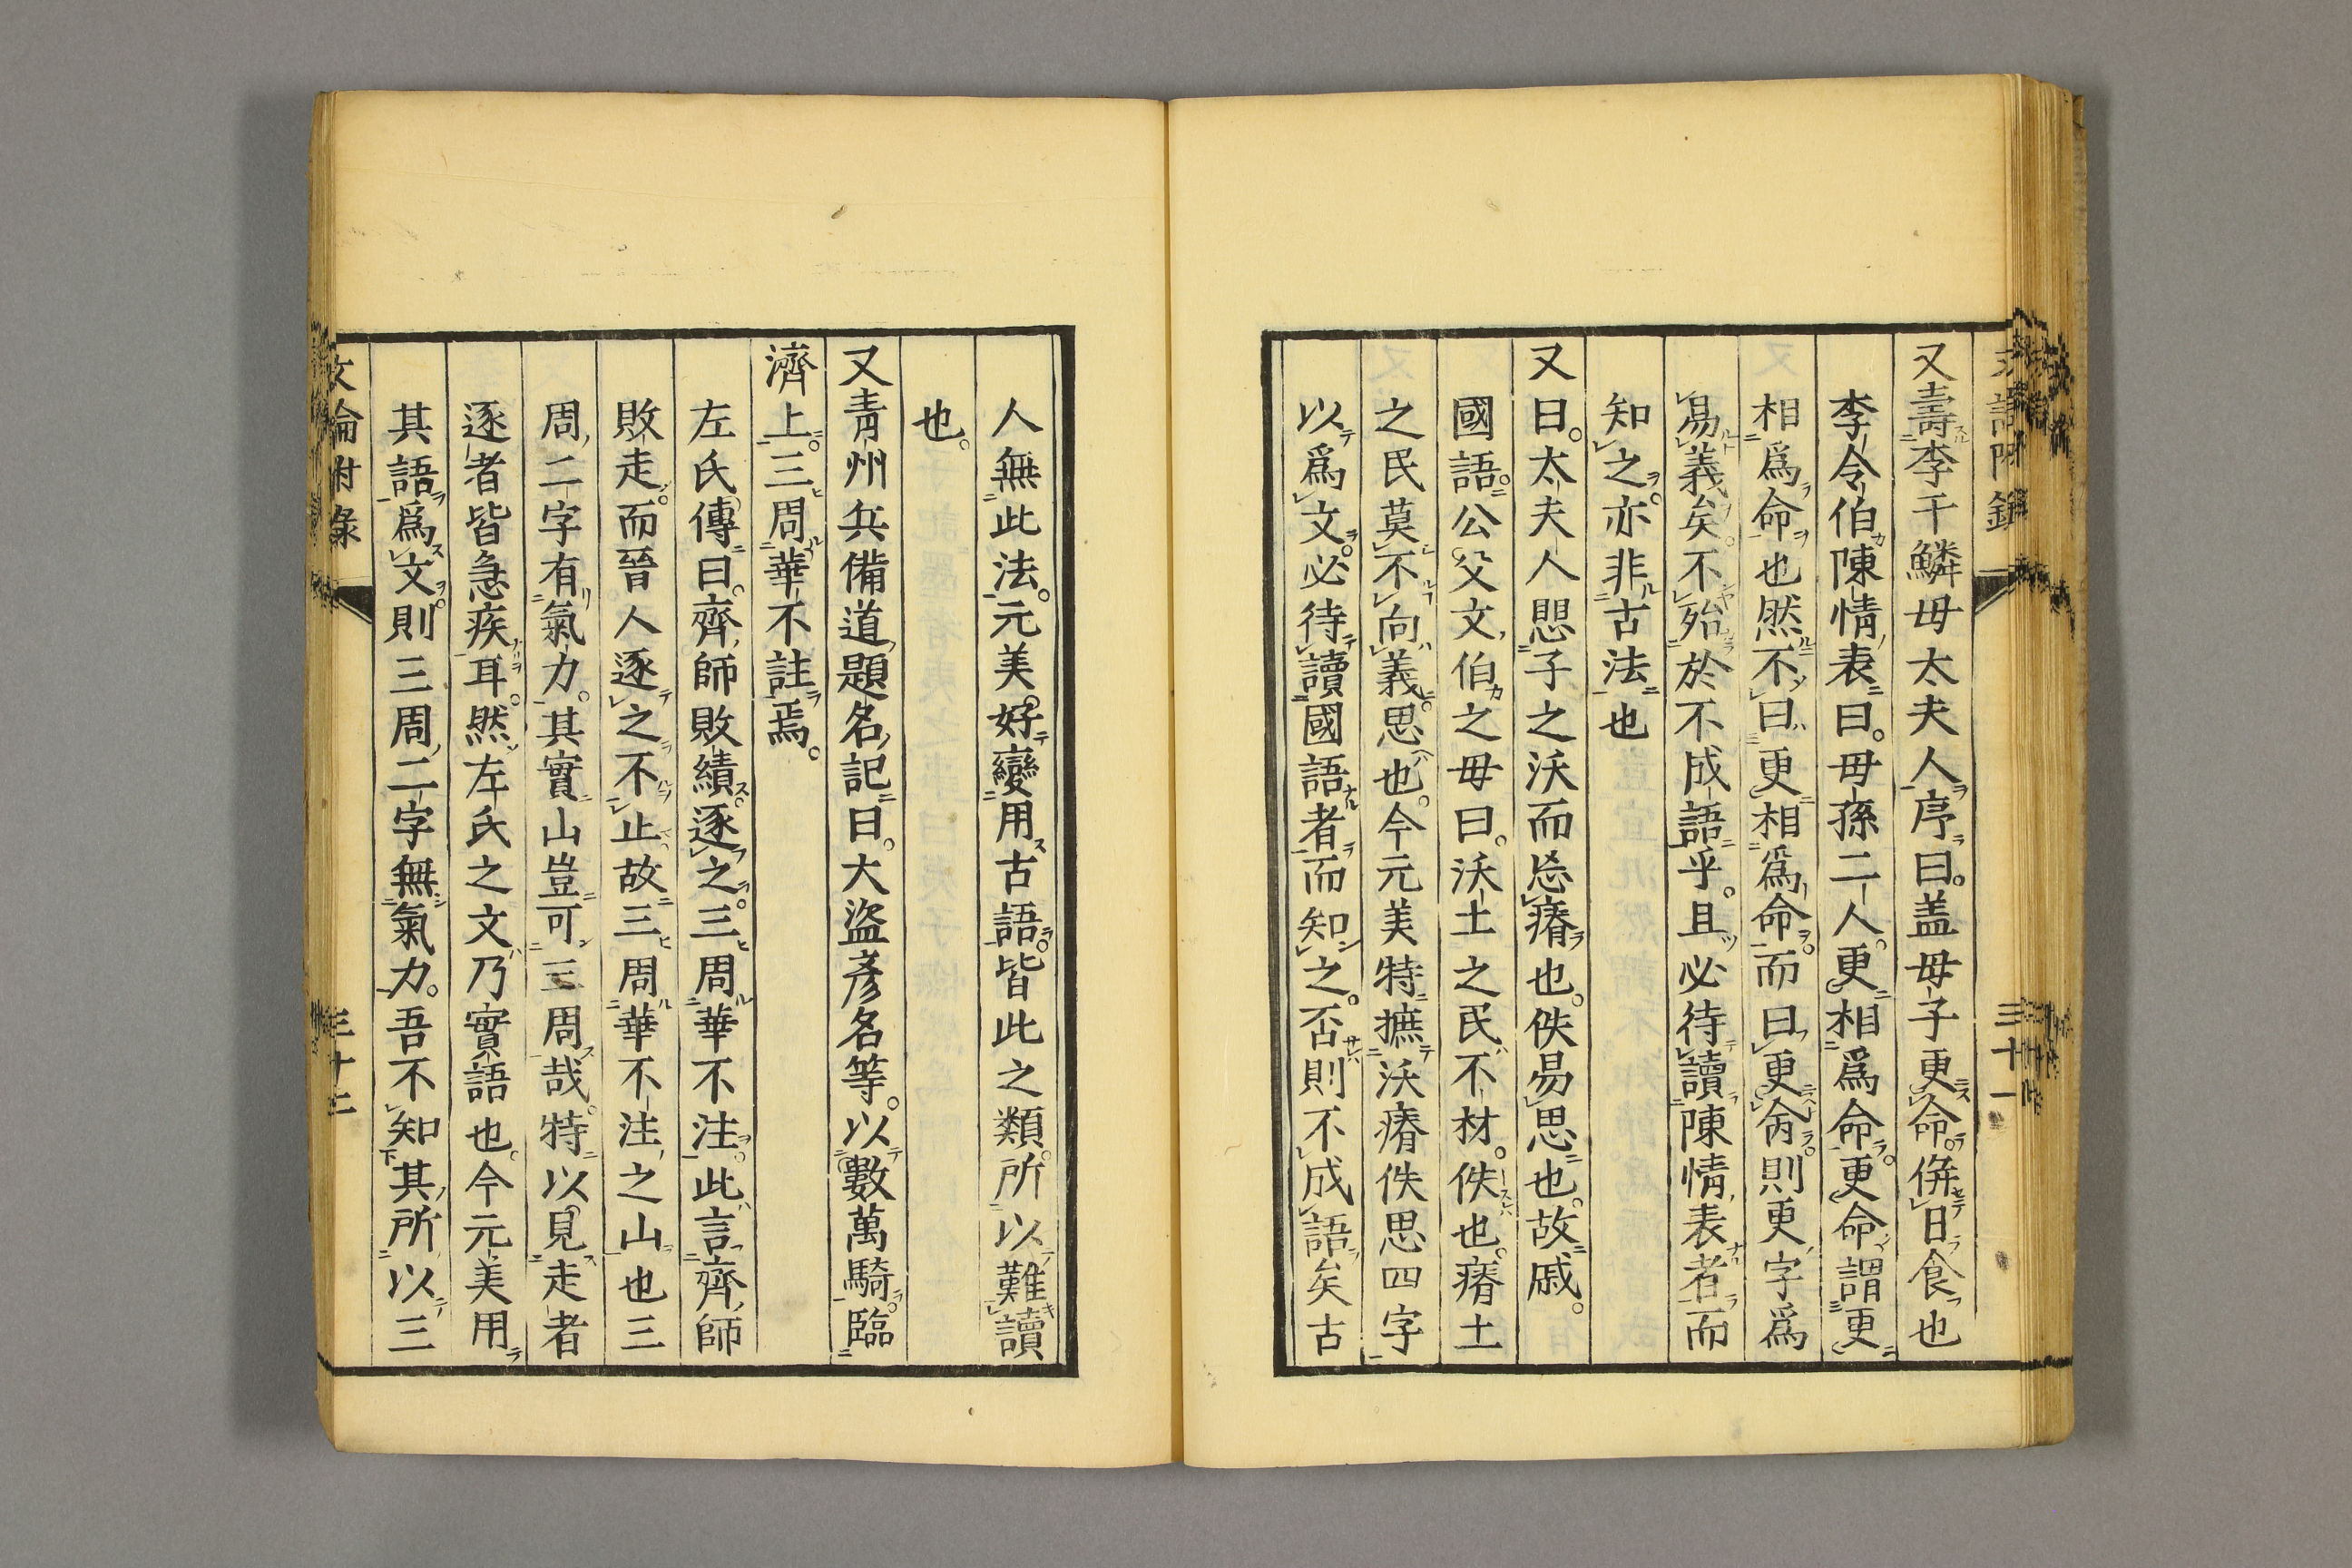 又壽李于鱗母太夫人序曰。盖母子更命。倂日食也
李令伯陳情表曰。母孫二人。更相爲命。更命謂更
相爲命也然不曰更相爲命。而曰更命。則更字爲
易義矣。不殆於不成語乎。且必待讀陳情表者而
知之。亦非古法也
又曰。太夫人愳子之沃而忘瘠也。佚易思也。故戚。
國語。公父文伯之母曰。沃土之民不材。佚也。瘠土
之民莫不向義。思也。今元美特摭沃瘠佚思四字
以爲文。必待讀國語者而知之。否則不成語矣古
三十一
人無此法。元美好變用古語。皆此之類。所以難讀
也。
又靑州兵備道題名記曰。大盜彦名等。以數萬騎。臨
濟上。三周華不註焉。
左氏傳曰。齊師敗績。逐之。三周華不注。此言齊師
敗走。而晉人逐之不止故三周華不注之山也三
周二字有氣力。其實山豈可三周哉。特以見走者
逐者皆急疾耳。然左氏之文乃實語也。今元美用
其語爲文。則三周二字無氣力。吾不知其所以三
文論附錄
三十二